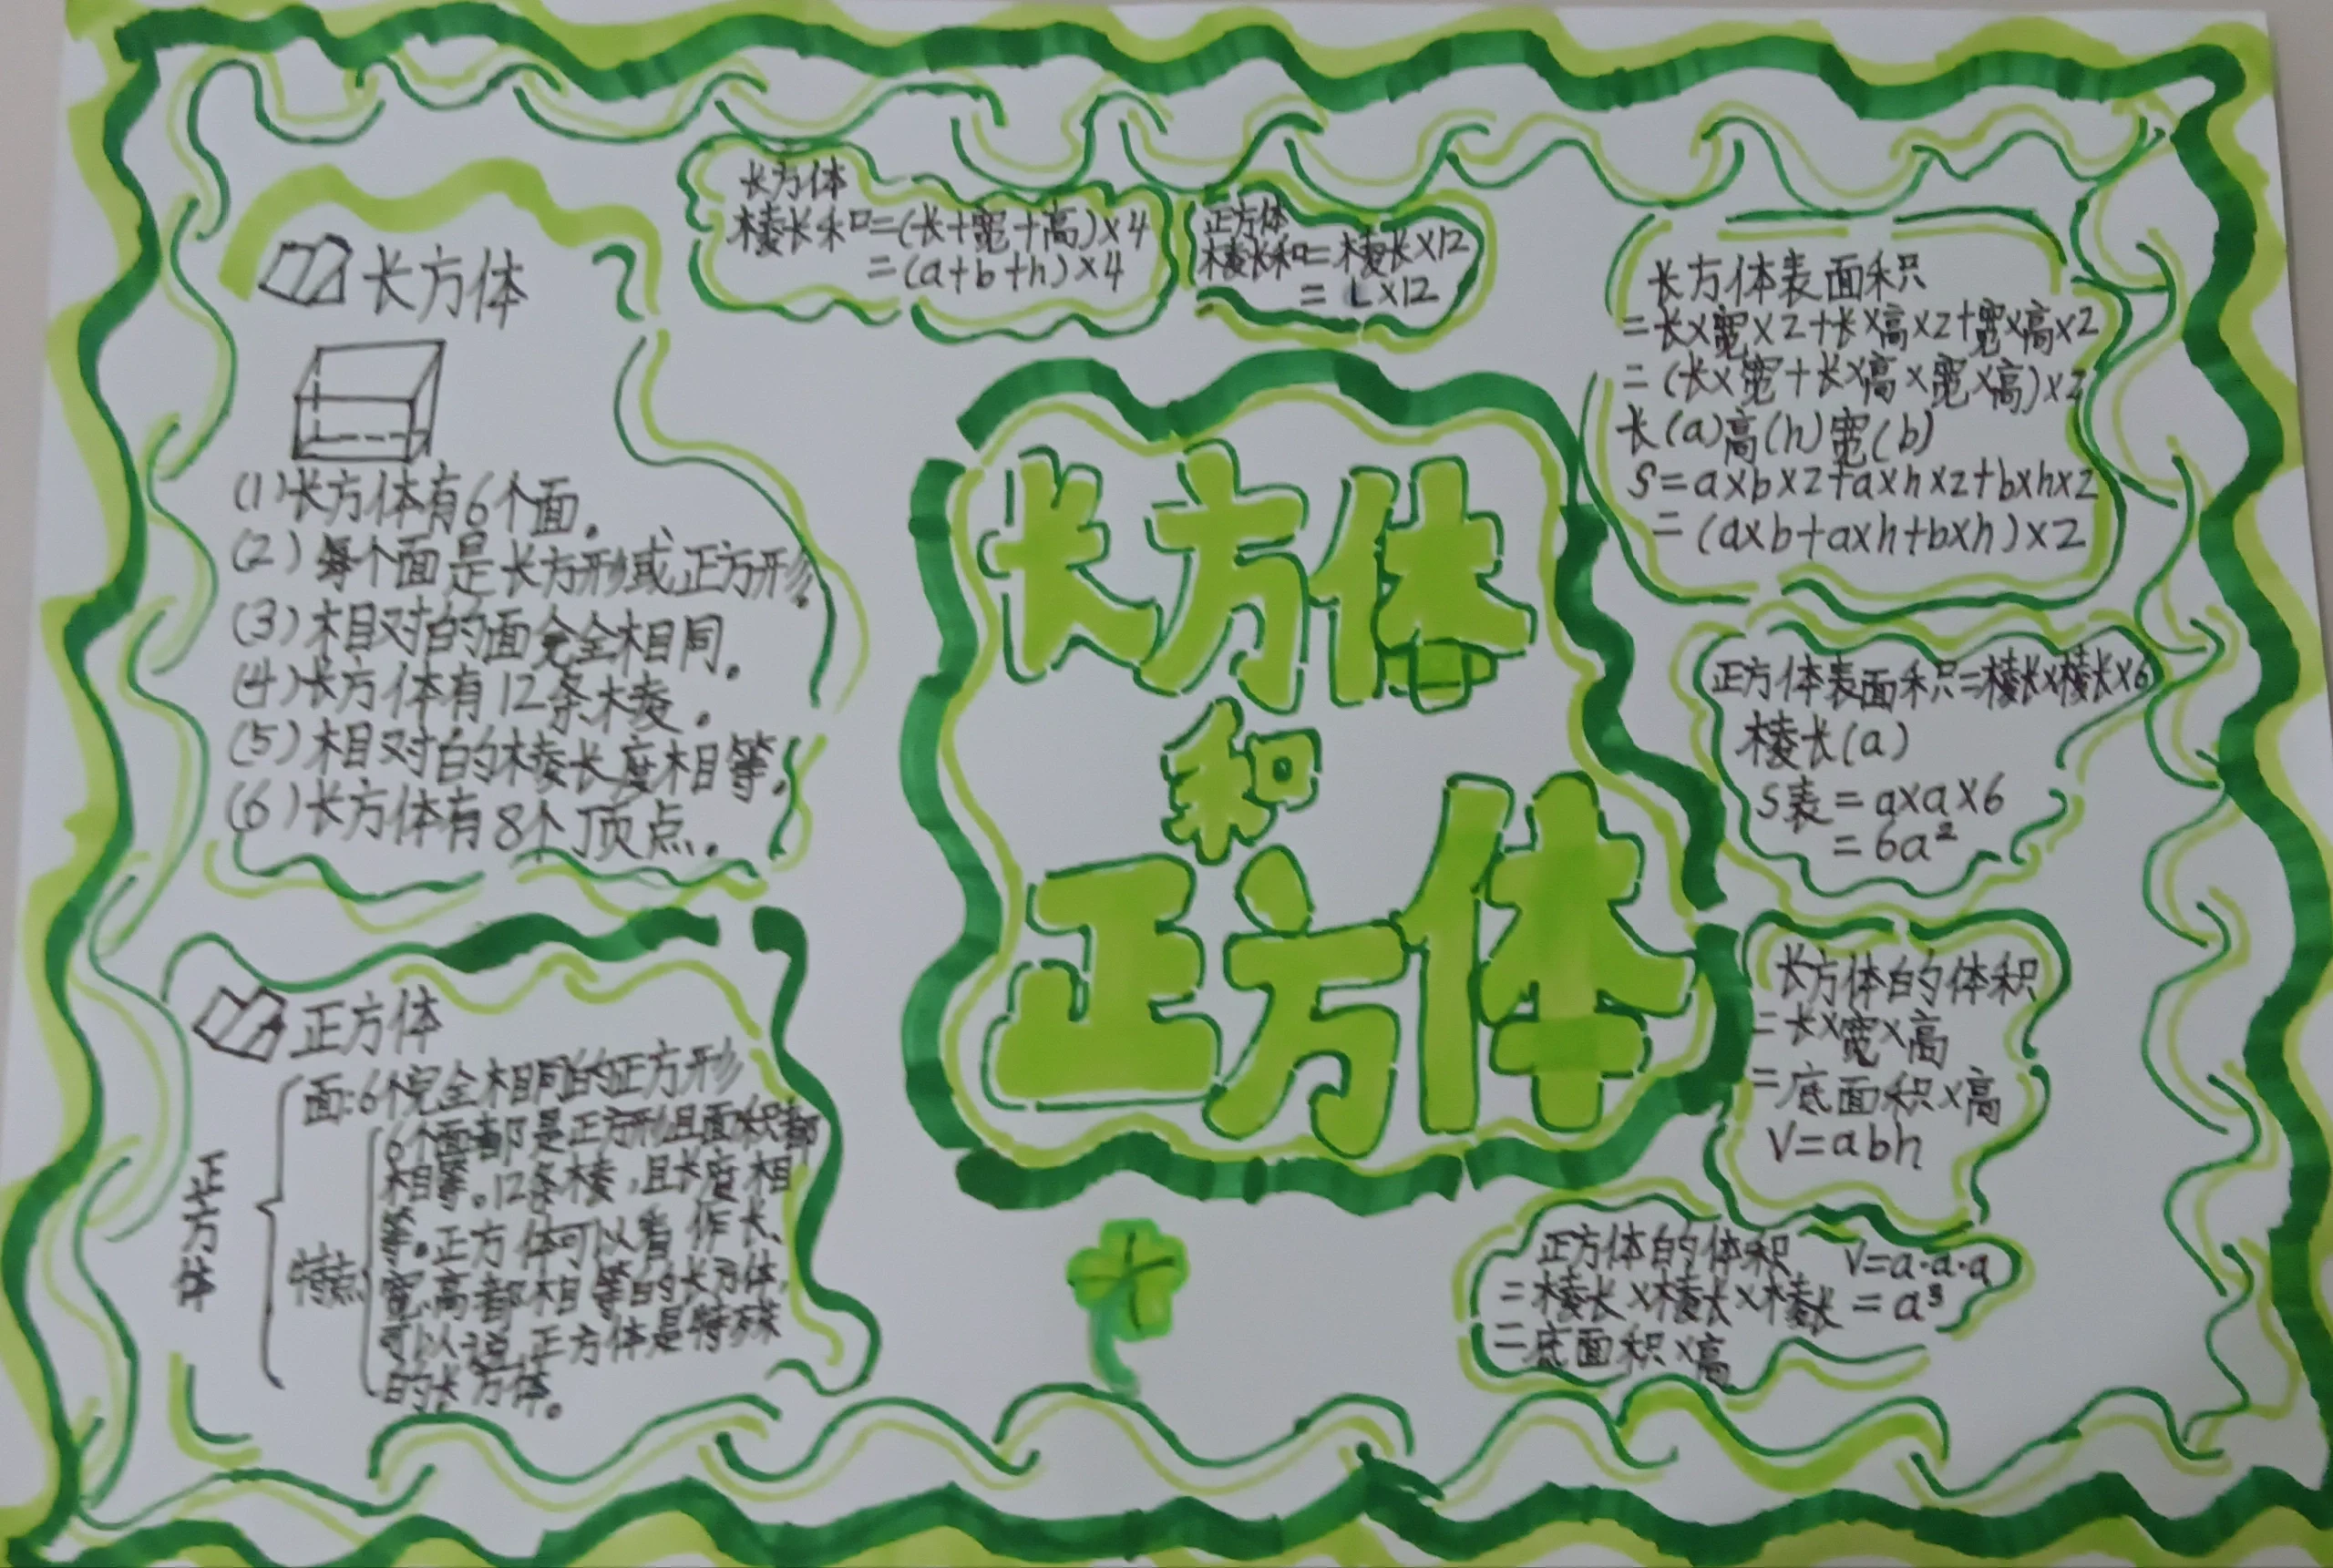 长方体
(1)长方体有6个面。
(2)每个面是长方形或正方形.
(3)相对的面完全相同。
(4)长方体有12条棱。
(5)相对的棱长度相等。
(6)长方体有8个顶点。
正方体
正方体
面:6个完全相同的正方形
特点
6个面都是正方形且面积都
相等。12条棱,且长度相
等。正方体可以看作长、
宽、高都相等的长方体,
可以说,正方体是特殊
的长方体。
长方体
棱长和=(长+宽+高)×4
=(a+b+h)×4
正方体
棱长和=棱长×12
=L×12
长方体
和
正方体
长方体表面积
=长×宽×2+长×高×2+宽×高×2
=(长×宽+长×高×宽×高)×2
长(a)高(h)宽(b)
S=a×b×2+a×h×2+b×h×2
=(a×b+a×h+b×h)×2
正方体表面积=棱长×棱长×6
棱长(a)
S表=a×a×6
=6a²
长方体的体积
=长×宽×高
=底面积×高
V=abh
正方体的体积 V=a·a·a
=棱长×棱长×棱长=a³
=底面积×高